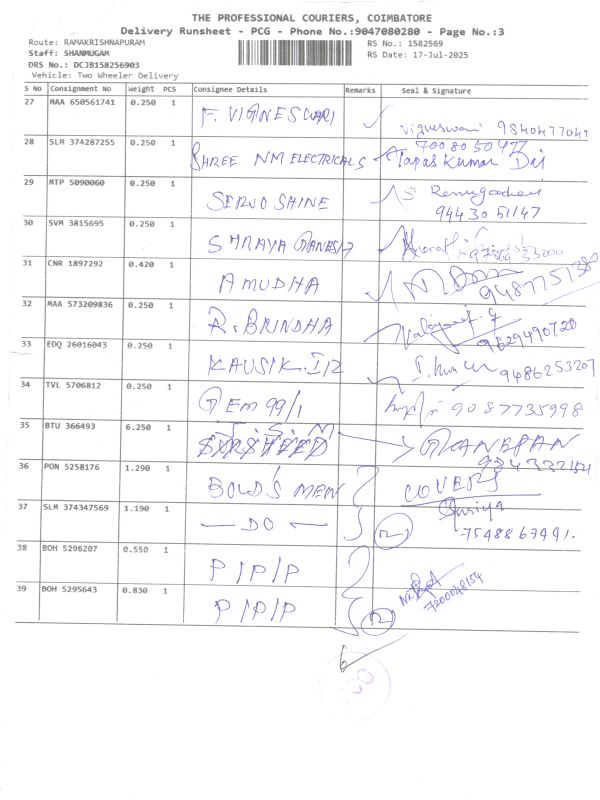 THE PROFESSIONAL COURIERS, COIMBATORE
Delivery Runsheet - PCG - Phone No.:9047080280 - Page No.:3
Route: RAMAKRISHNAPURAM
RS No.: 1582569
Staff: SHANMUGAM
RS Date: 17-Jul-2025
DRS No.: DCJB158256903
Vehicle: Two Wheeler Delivery
S No Consignment No Weight PCS Consignee Details Remarks Seal & Signature
27 MAA 650561741 0.250 1 F. VIGNESWARI Vigneswari 9840477041
28 SLM 374287255 0.250 1 SHREE NM ELECTRICALS 7008050477 Tapas Kumar Das
29 MTP 5090060 0.250 1 SERVO SHINE 9443051147
30 SVM 3815695 0.250 1
31 CNR 1897292 0.420 1 AMUDHA
32 MAA 573209836 0.250 1 R. BRINDHA 9629490720
33 EDQ 26016043 0.250 1 KAUSIK. 9486253207
34 TVL 5706812 0.250 1 GEM 99/1 9087735998
35 BTU 366493 6.250 1 GANESAN
36 PON 5258176 1.290 1 BOLD'S MEN COVERS
37 SLM 374347569 1.190 1 — DO — 2 Suriya
38 BOH 5296207 0.550 1 P/P/P
39 BOH 5295643 0.830 1 P/P/P 2 7200048154
6